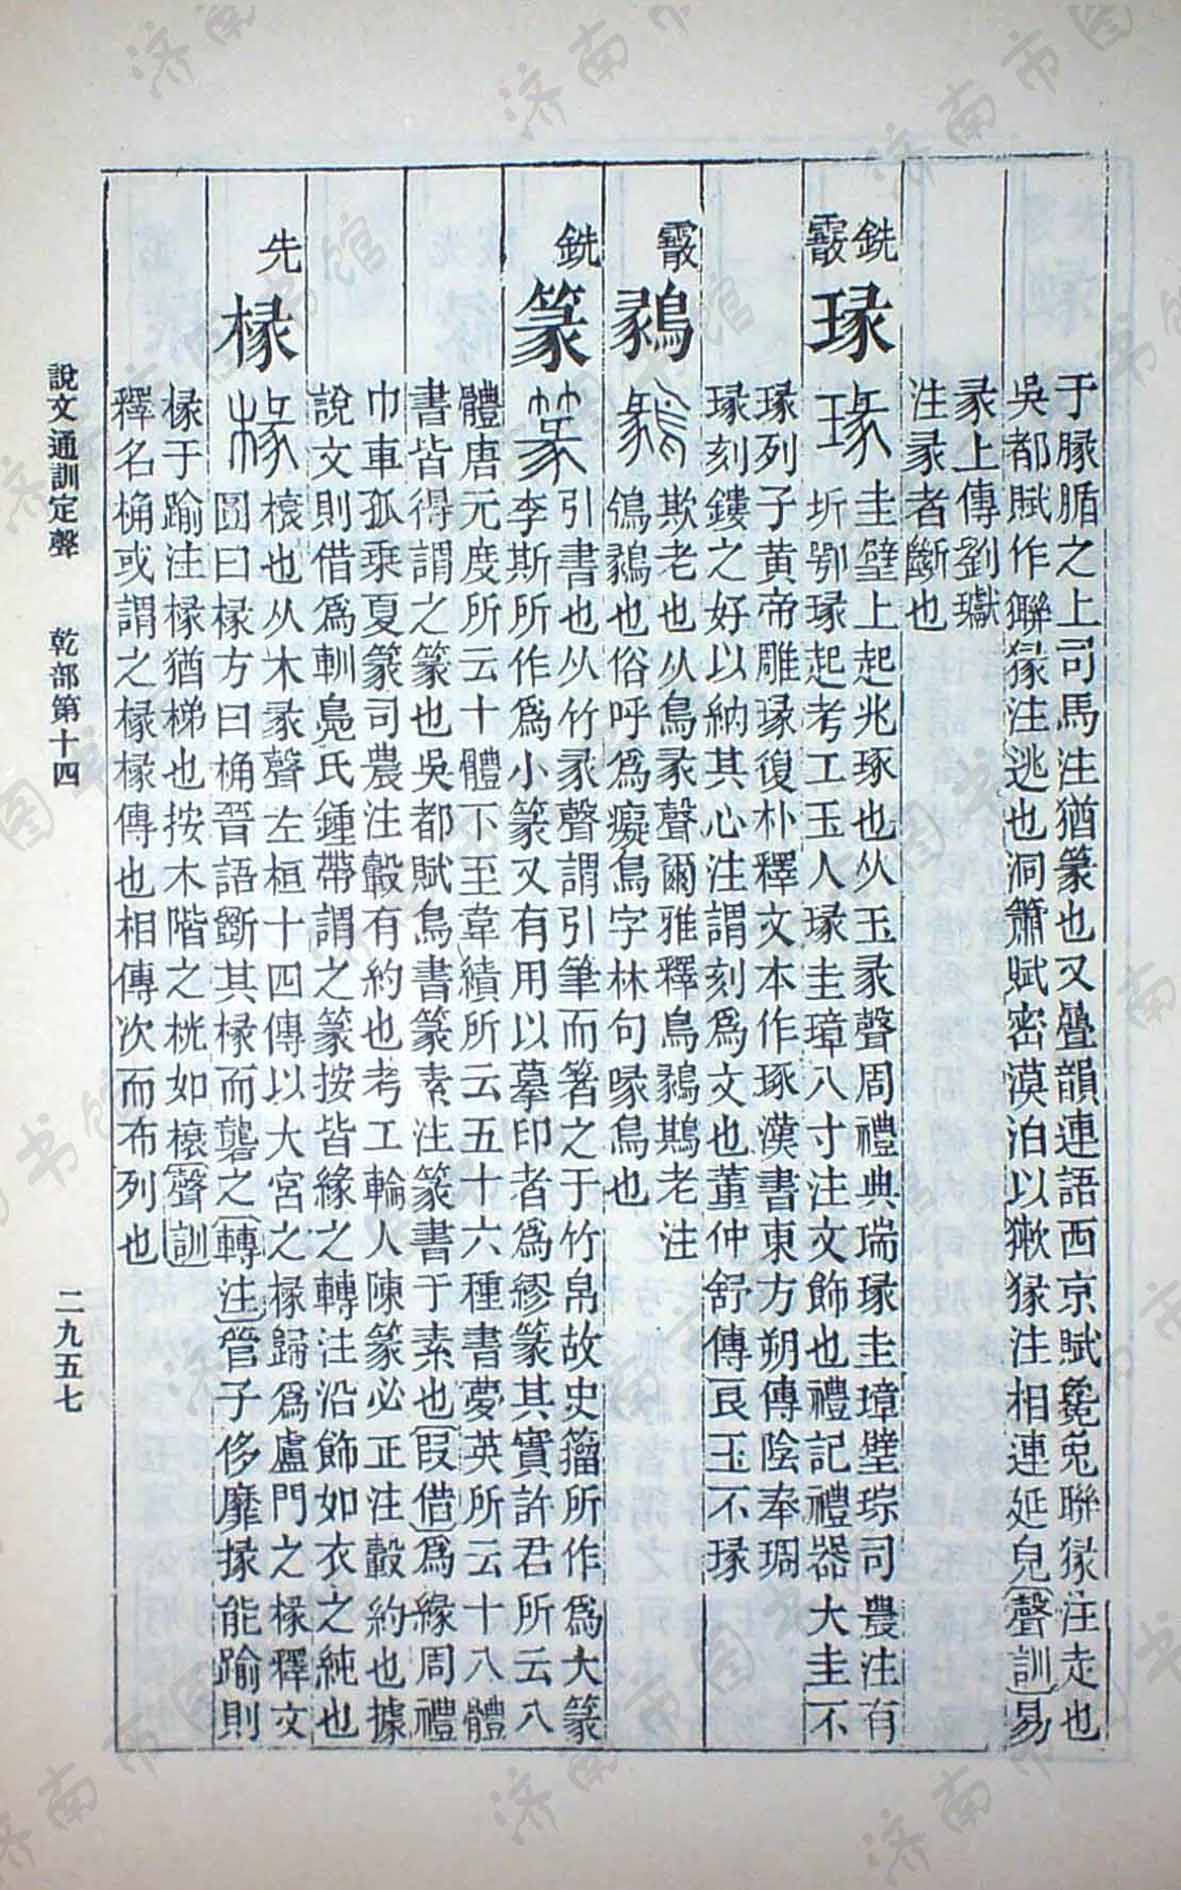 于腞腯之上司馬注猶篆也又疊韻連語西京賦毚兔聯猭注走也
吳都賦作獑猭注逃也洞簫賦密漠泊以獤猭注相連延皃〔聲訓〕易
彖上傳劉瓛
注彖者斷也
銑
霰
瑑
圭璧上起兆瑑也从玉彖聲周禮典瑞瑑圭璋璧琮司農注有
圻鄂瑑起考工玉人瑑圭璋八寸注文飾也禮記禮器大圭不
瑑列子黃帝雕瑑復朴釋文本作琢漢書東方朔傳陰奉琱
瑑刻鏤之好以納其心注謂刻爲文也董仲舒傳良玉不瑑
霰
鶨
欺老也从鳥彖聲爾雅釋鳥鶨鶀老注
鴿鶨也俗呼爲癡鳥字林句喙鳥也
銑
篆
引書也从竹彖聲謂引筆而箸之于竹帛故史籀所作爲大篆
李斯所作爲小篆又有用以摹印者爲繆篆其實許君所云八
體唐元度所云十體下至韋續所云五十六種書夢英所云十八體
書皆得謂之篆也吳都賦鳥書篆素注篆書于素也〔叚借〕爲緣周禮
巾車孤乗夏篆司農注轂有約也考工輪人陳篆必正注轂約也據
說文則借爲軘鳧氏鍾帶謂之篆按皆緣之轉注沿飾如衣之純也
先
椽
榱也从木彖聲左桓十四傳以大宮之椽歸爲盧門之椽釋文
圓曰椽方曰桷晉語斲其椽而礱之〔轉注〕管子侈靡掾能踰則
椽于踰注椽猶梯也按木階之桄如榱〔聲訓〕
釋名桷或謂之椽椽傳也相傳次而布列也
說文通訓定聲　乾部第十四
二九五七
济南市图书馆